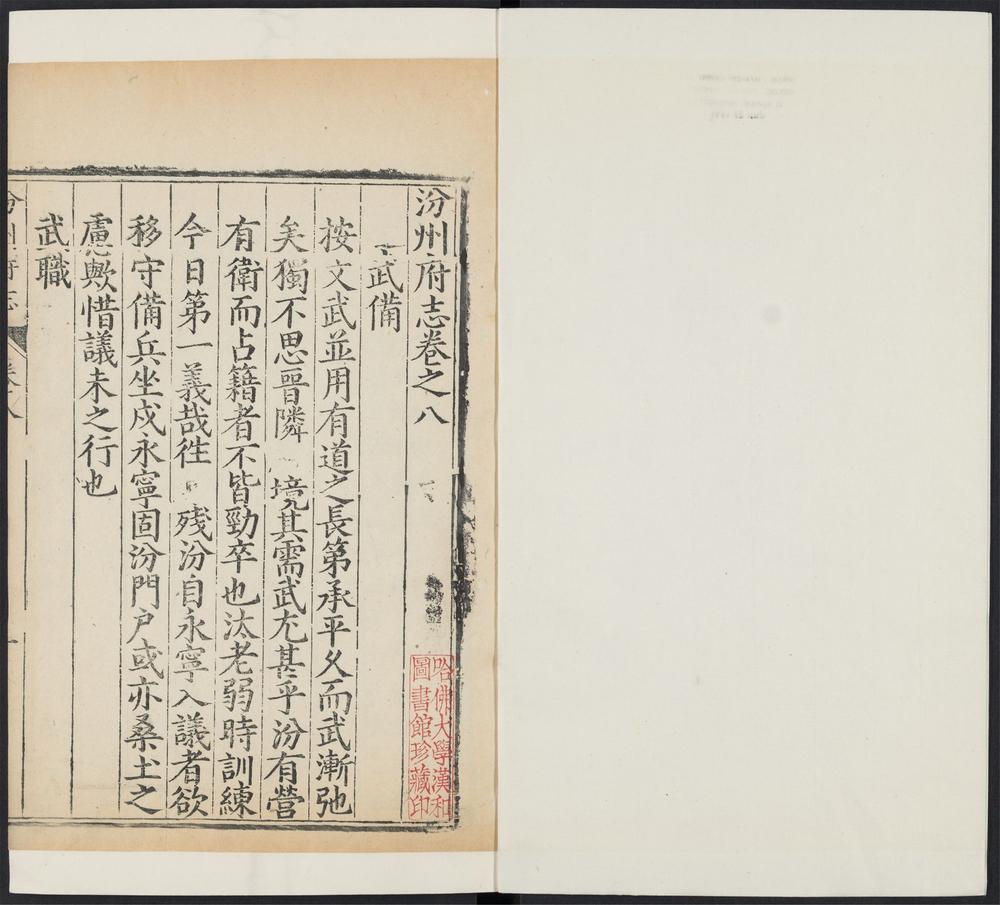 汾州府志卷之八
武備
按文武並用有道之長第承平久而武漸弛
矣獨不思晉隣 境其需武尤甚乎汾有營
有衛而占籍者不皆勁卒也汰老弱時訓練
今日第一義哉徃 殘汾自永寧入議者欲
移守備兵坐戍永寧固汾門户或亦桑土之
慮歟惜議未之行也
武職
哈佛大學漢和
圖書館珍藏印